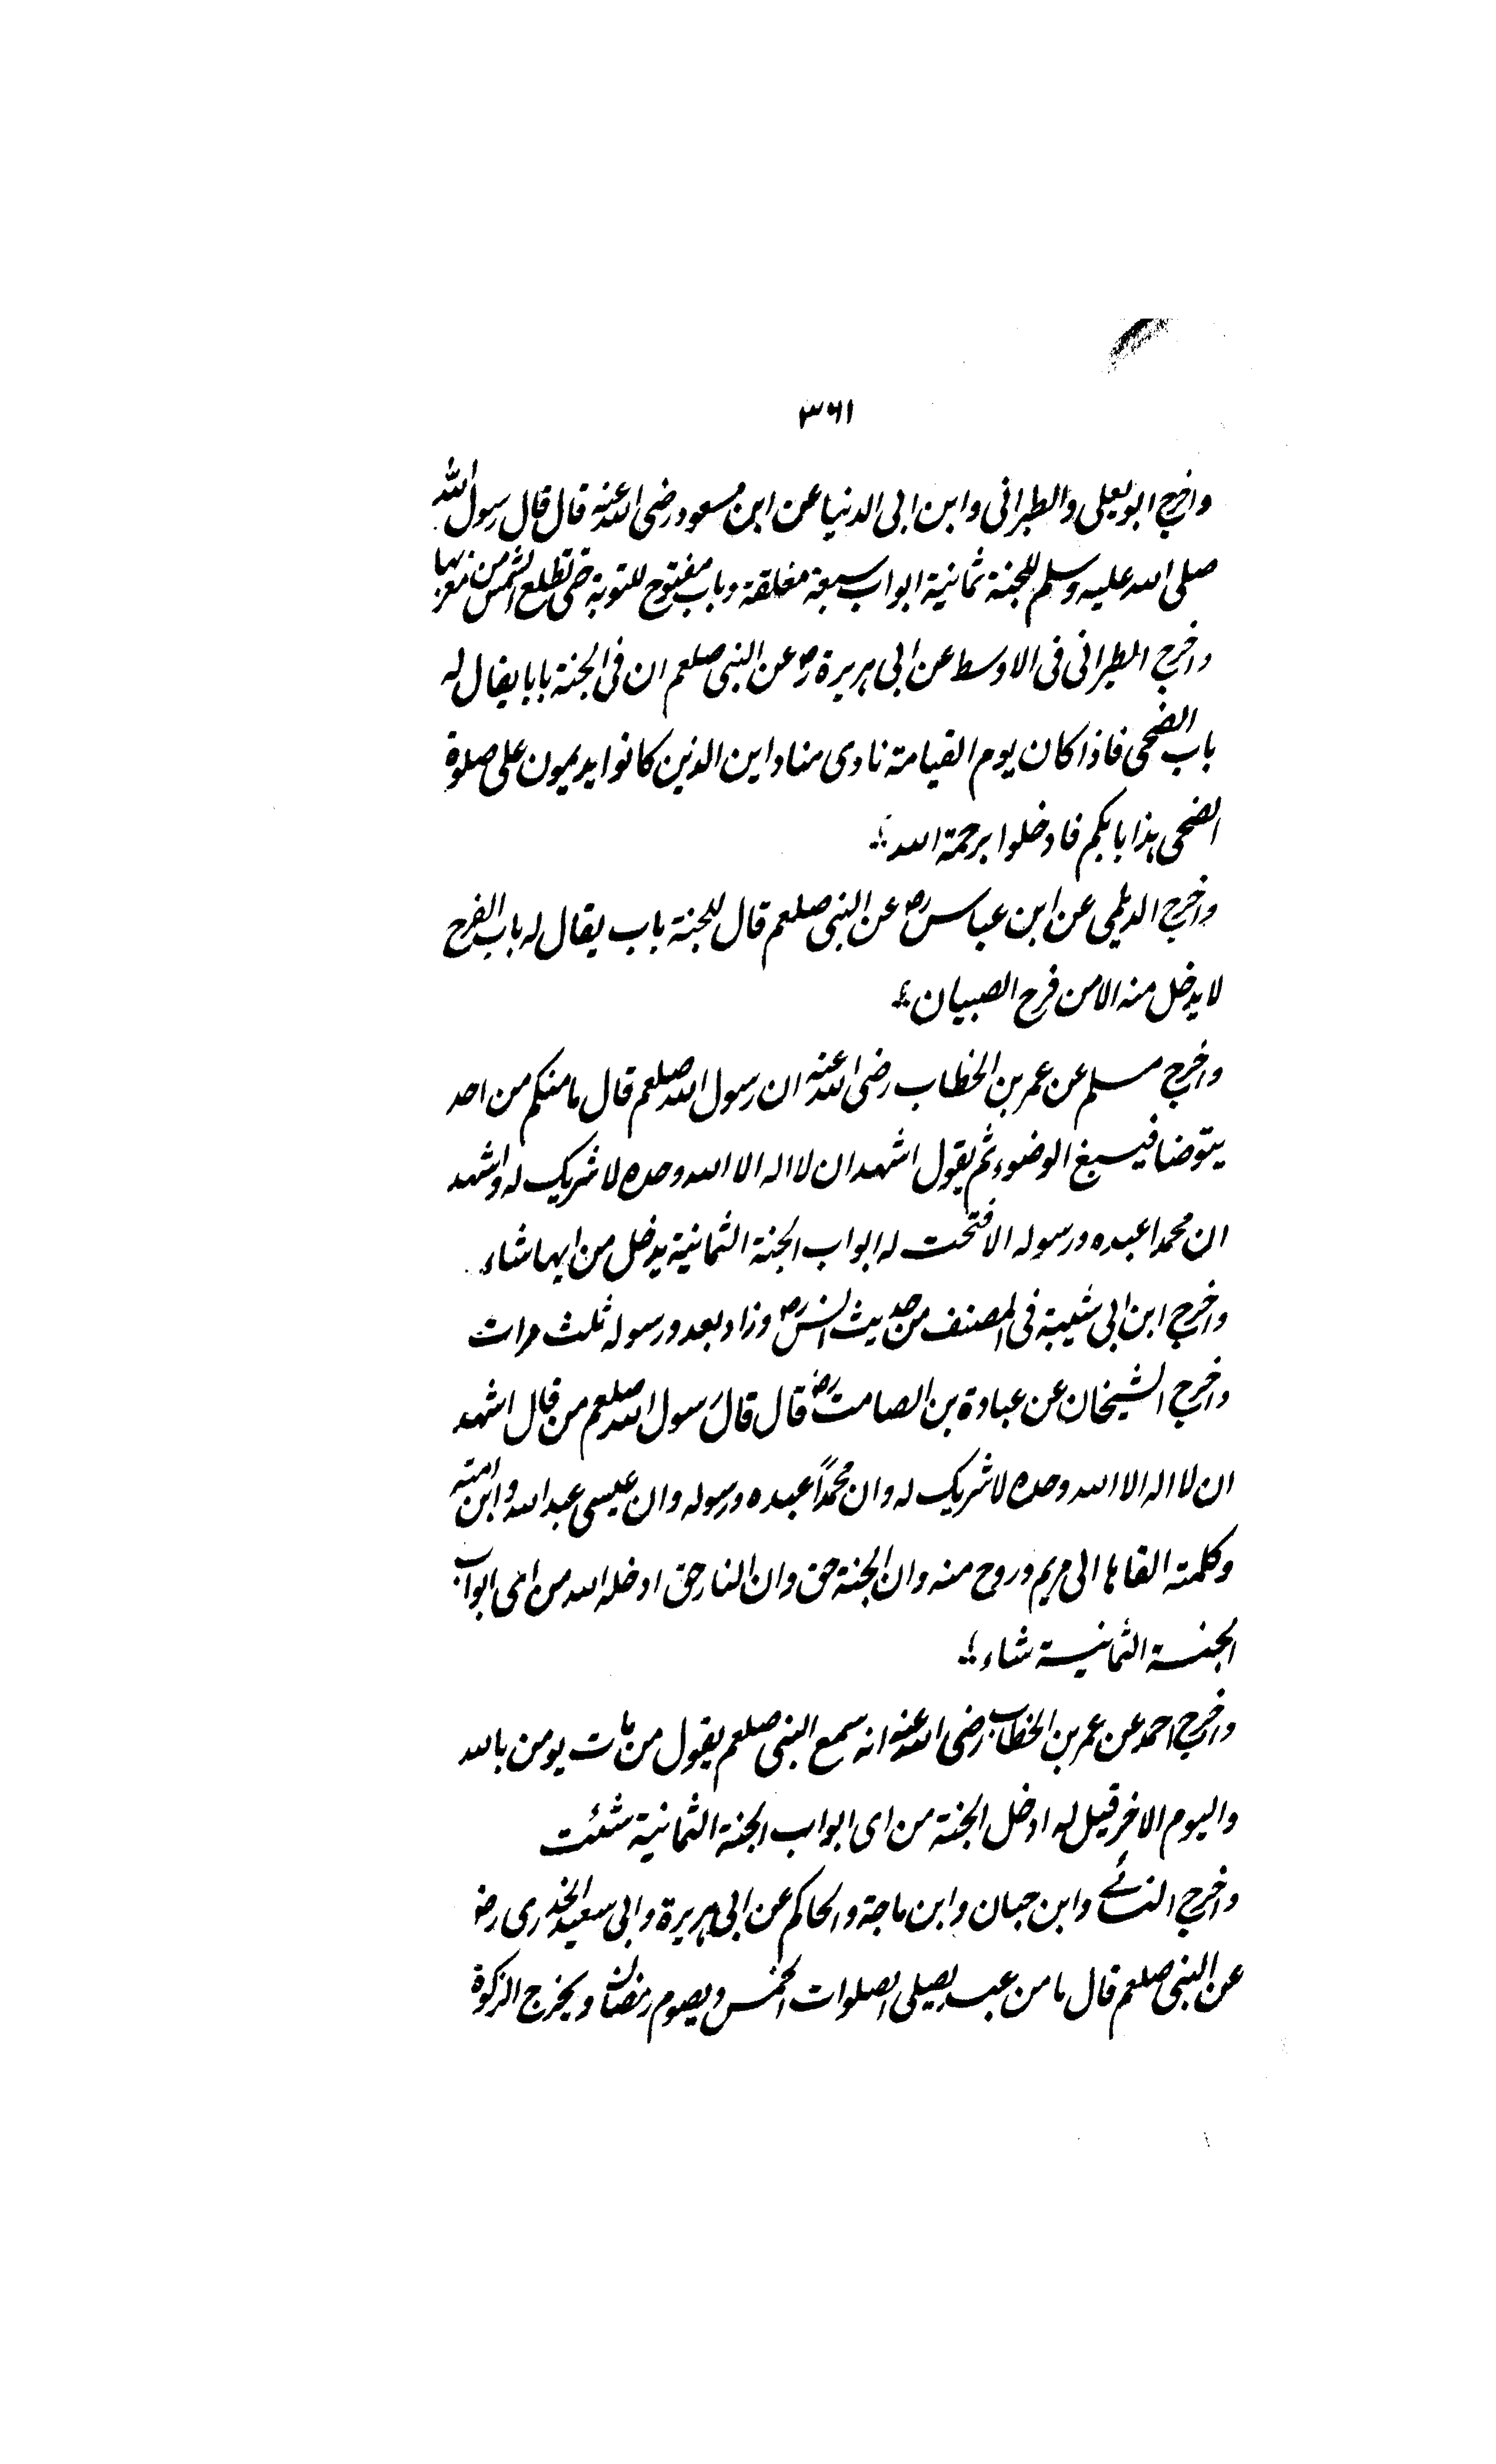 ۳۶۱
واخرج ابو يعلى والطبرانى وابن ابى الدنيا عن ابن مسعود رضى الله عنه قال قال رسول الله
صلى الله عليه وسلم للجنة ثمانية ابواب سبعة مغلقة وباب مفتوح للتوبة حتى تطلع الشمس من مغربها
واخرج الطبرانى فى الاوسط عن ابى هريرة رض عن النبى صلعم ان فى الجنة بابا يقال له
باب الضحى فاذا كان يوم القيامة نادى مناد اين الذين كانوا يديمون على صلوة
الضحى هذا بابكم فادخلوا برحمة الله ؛
واخرج الديلمى عن ابن عباس رض عن النبى صلعم قال للجنة باب يقال له باب الفرح
لا يدخل منه الا من فرح الصبيان ؛
واخرج مسلم عن عمر بن الخطاب رضى الله عنه ان رسول الله صلعم قال ما منكم من احد
يتوضا فيسبغ الوضوء ثم يقول اشهد ان لا اله الا الله وحده لا شريك له واشهد
ان محمدا عبده ورسوله الا فتحت له ابواب الجنة الثمانية يدخل من ايها شاء
واخرج ابن ابى شيبة فى المصنف من حديث انس رض وزاد بعد ورسوله ثلث مرات
واخرج الشيخان عن عبادة بن الصامت رض قال قال رسول الله صلعم من قال اشهد
ان لا اله الا الله وحده لا شريك له وان محمداً عبده ورسوله وان عيسى عبد الله وابن امته
وكلمته القاها الى مريم وروح منه وان الجنة حق وان النار حق ادخله الله من اى ابواب
الجنة الثمانية شاء ؛
واخرج احمد عن عمر بن الخطاب رضى الله عنه انه سمع النبى صلعم يقول من مات يومن بالله
واليوم الاخر قيل له ادخل الجنة من اى ابواب الجنة الثمانية شئت
واخرج النسائے وابن حبان وابن ماجة والحاكم عن ابى هريرة وابى سعيد الخدرى رض
عن النبى صلعم قال ما من عبد يصلى الصلوات الخمس ويصوم رمضان ويخرج الزكوة